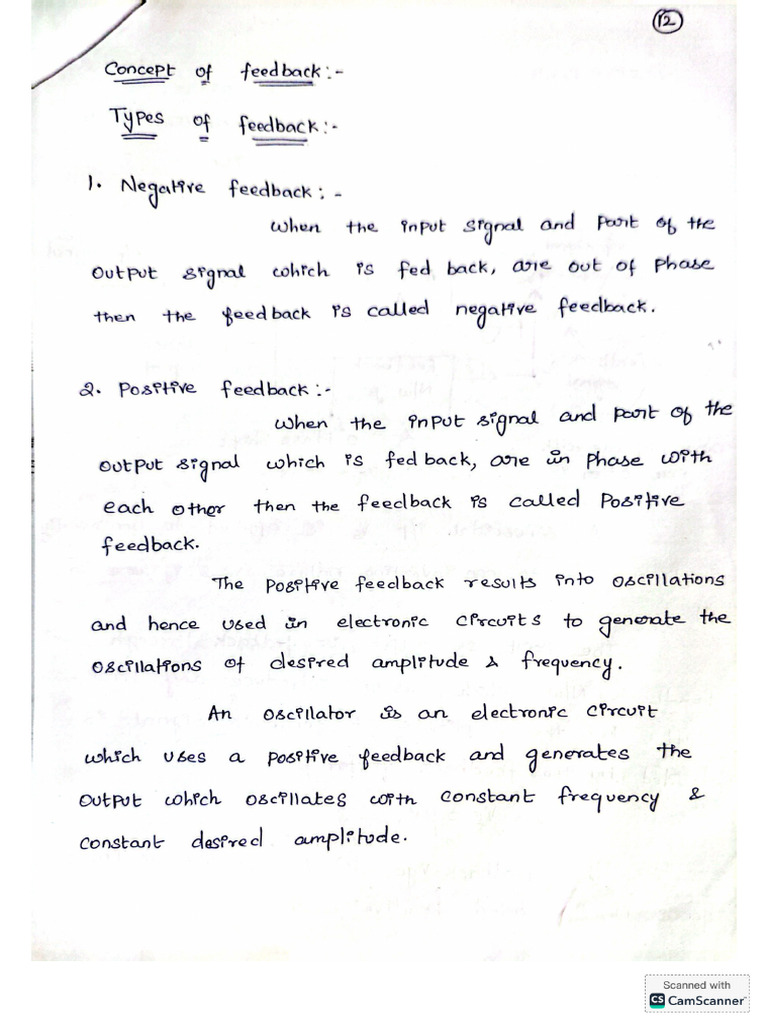 12
Concept of feedback:-
Types of feedback:-
1. Negative feedback:-
When the input signal and part of the
output signal which is fed back, are out of phase
then the feedback is called negative feedback.
2. Positive feedback:-
When the input signal and part of the
output signal which is fed back, are in phase with
each other then the feedback is called positive
feedback.
The positive feedback results into oscillations
and hence used in electronic circuits to generate the
oscillations of desired amplitude & frequency.
An oscillator is an electronic circuit
which uses a positive feedback and generates the
output which oscillates with constant frequency &
constant desired amplitude.
Scanned with
CS CamScanner